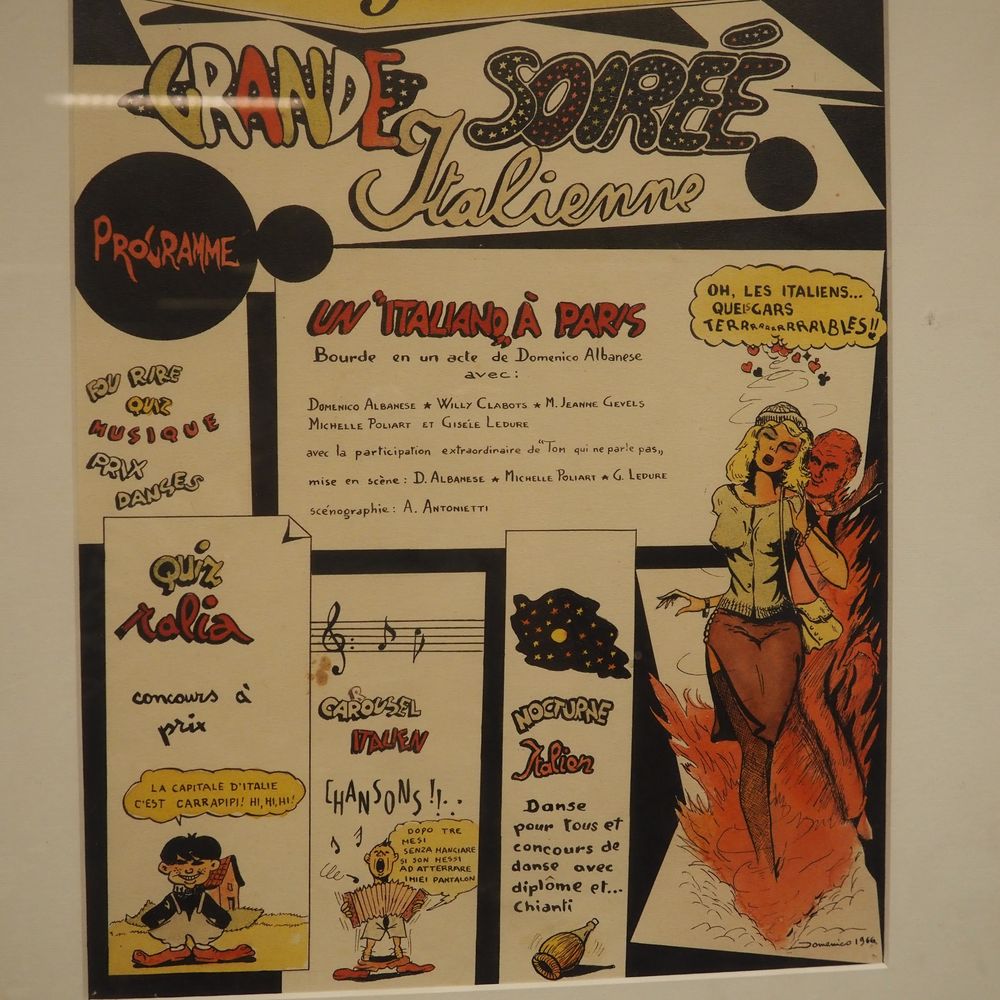 GRANDE SOIRÉE
Italienne
PROGRAMME
FOU RIRE
QUIZ
MUSIQUE
PRIX
DANSES
UN "ITALIANO„ À PARIS
Bourde en un acte de Domenico Albanese
avec:
DOMENICO ALBANESE ★ WILLY CLABOTS ★ M. JEANNE GEVELS
MICHELLE POLIART ET GISELE LEDURE
avec la participation extraordinaire de "TOM qui ne parle pas„
mise en scène: D. ALBANESE ★ MICHELLE POLIART ★ G. LEDURE
scénographie: A. ANTONIETTI
OH, LES ITALIENS...
QUELS GARS
TERRRRRRRRRIBLES!!
QUIZ
Italia
concours à
prix
LA CAPITALE D'ITALIE
C'EST CARRAPIPI! HI, HI, HI!
CAROUSEL
ITALIEN
CHANSONS!!..
DOPO TRE
MESI
SENZA MANGIARE
SI SON MESSI
AD ATTERRARE
I MIEI PANTALON
NOCTURNE
Italien
Danse
pour tous et
concours de
danse avec
diplôme et...
Chianti
Domenico 1966